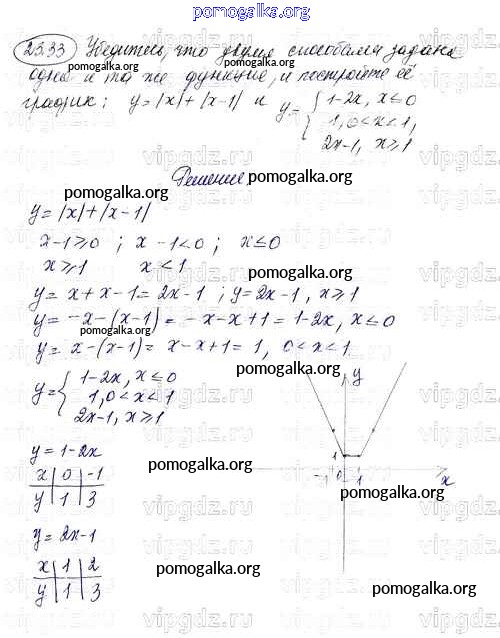 pomogalka.org
25.33 Убедитесь, что двумя способами задана
одна и та же функция, и постройте её
график: y=|x|+|x-1| и y={1-2x, x≤0
1, 0<x<1,
2x-1, x≥1
pomogalka.org
Решение.
pomogalka.org
y=|x|+|x-1|
x-1≥0 ; x-1<0 ; x≤0
x≥1 x<1
pomogalka.org
y= x+x-1= 2x-1 ; y=2x-1, x≥1
y= -x-(x-1)= -x-x+1= 1-2x, x≤0
pomogalka.org
y= x-(x-1)= x-x+1= 1, 0<x<1
y={1-2x, x≤0
1, 0<x<1
2x-1, x≥1
y
1
-1 0 1 x
y=1-2x
pomogalka.org
x 0 -1
y 1 3
pomogalka.org
y=2x-1
x 1 2
y 1 3
pomogalka.org
vipgdz.ru